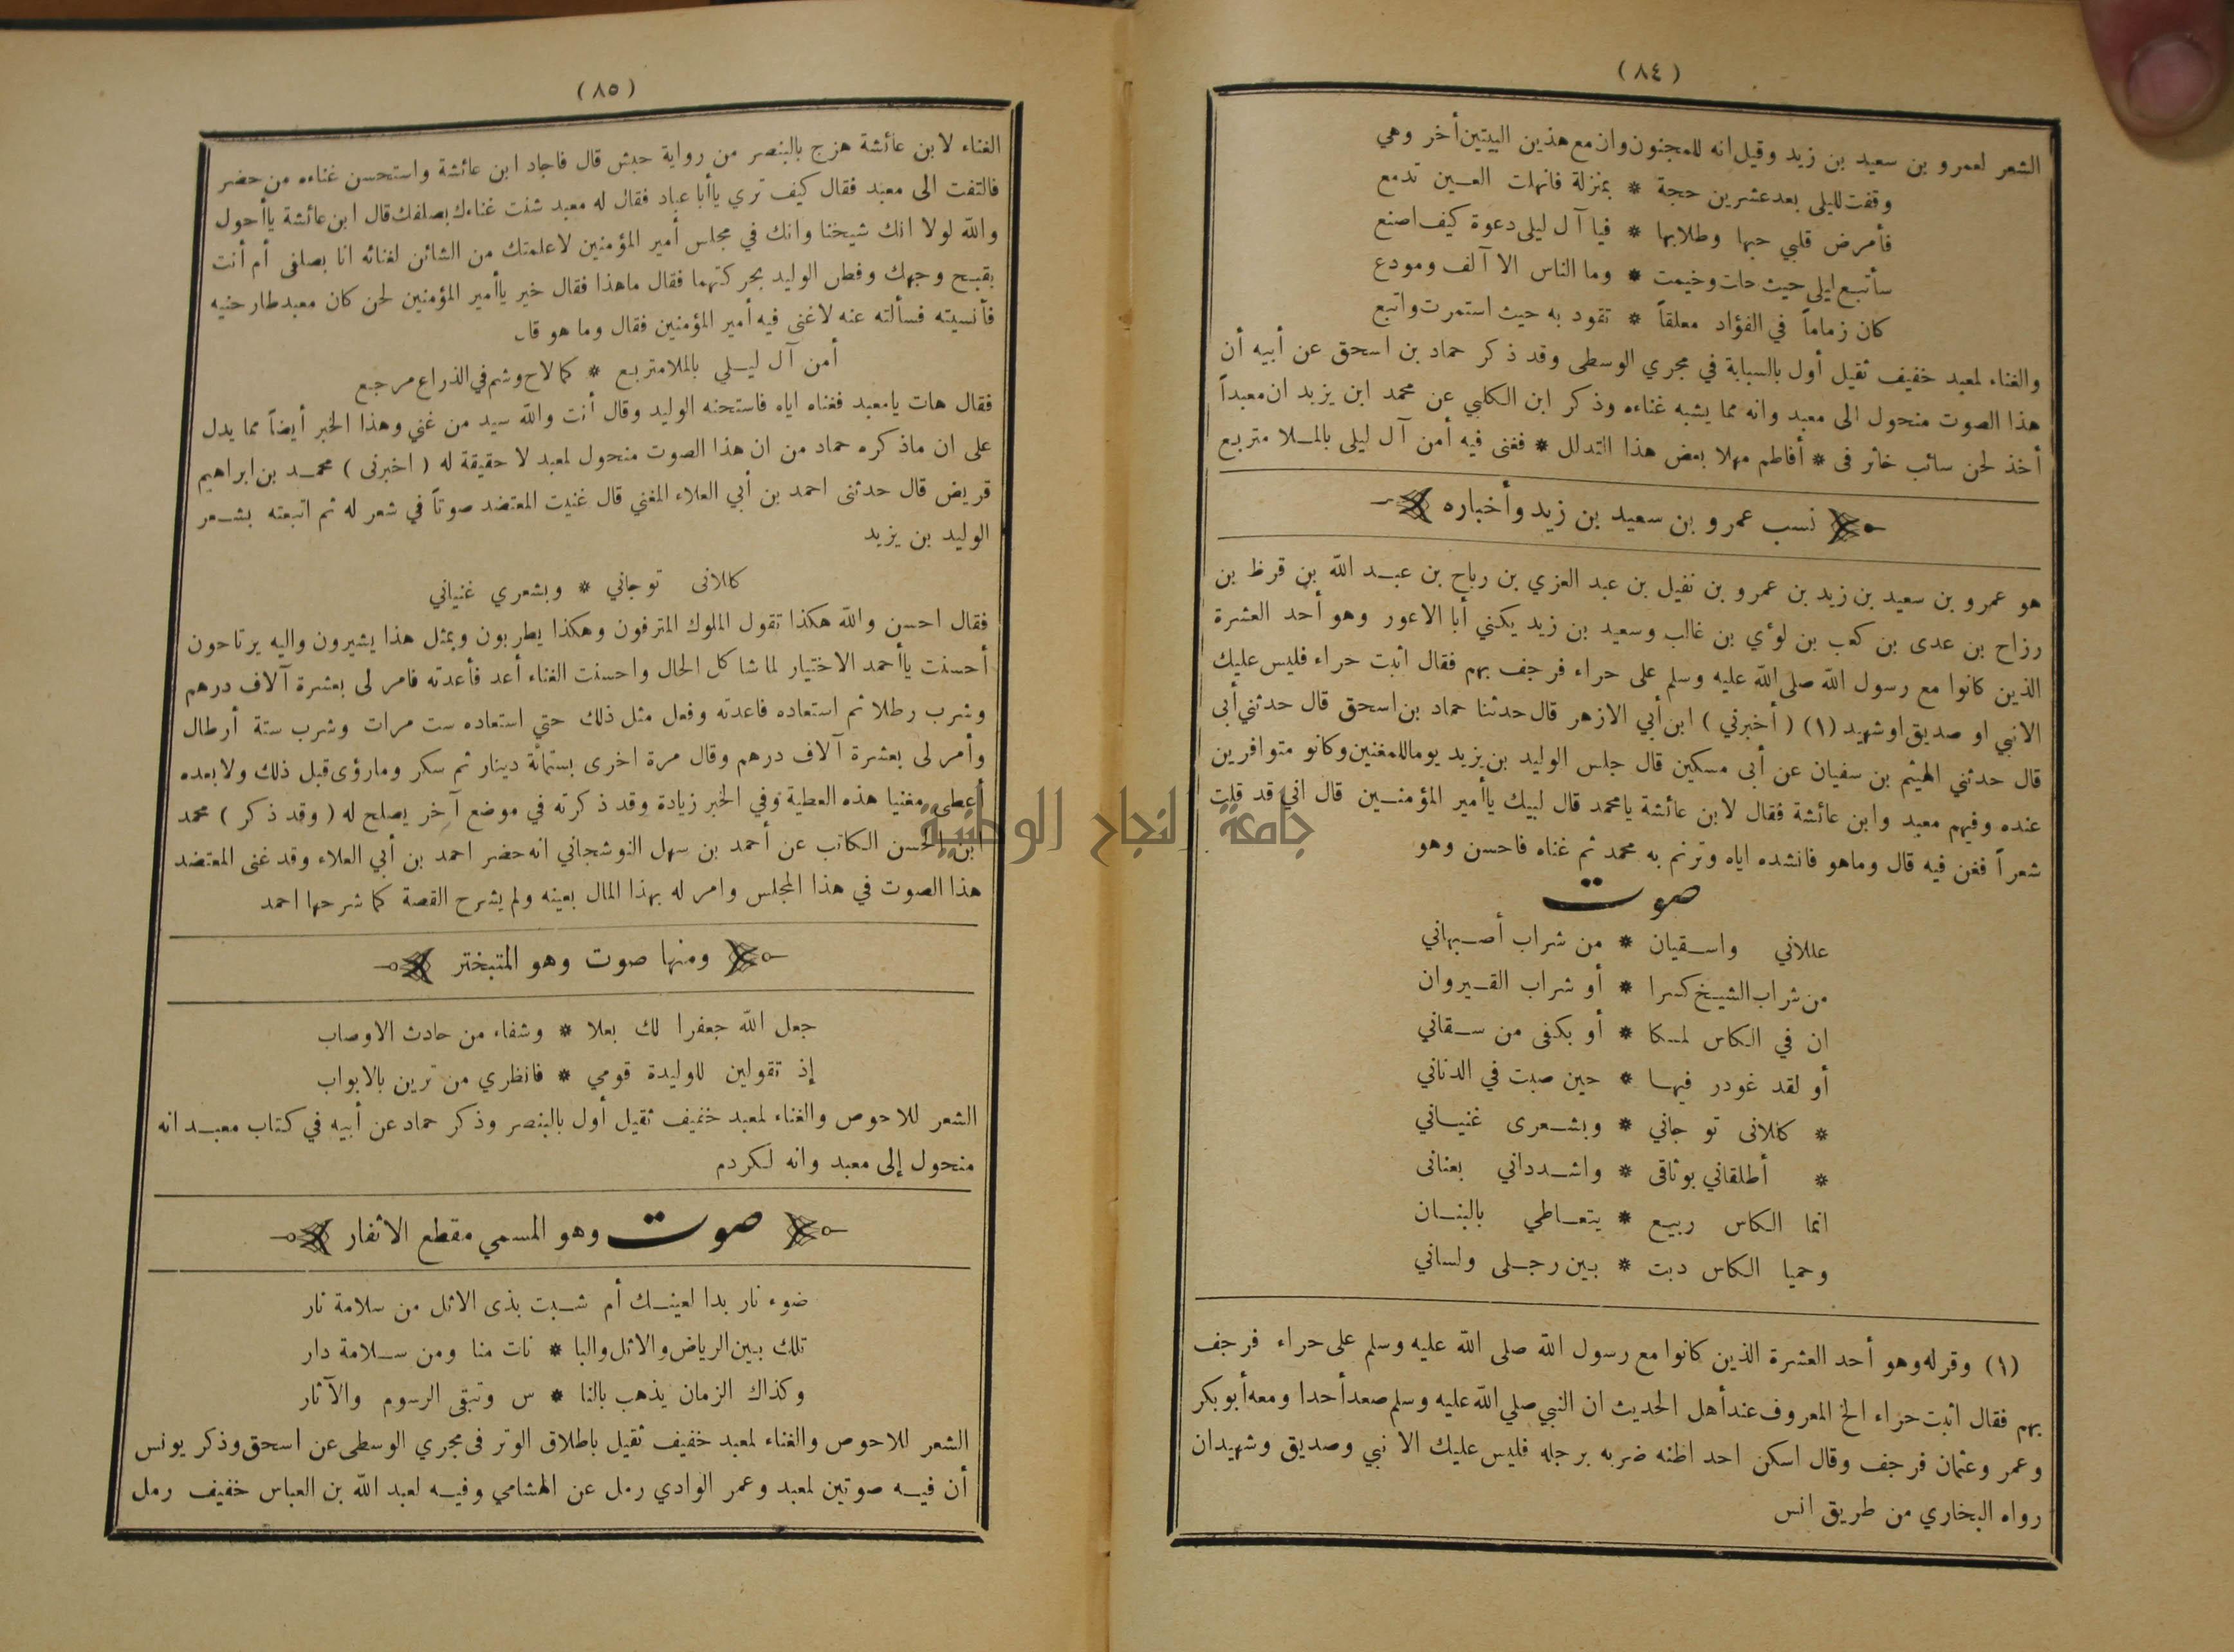 (٨٤)
الشعر لعمرو بن سعيد بن زيد وقيل انه للمجنون وان مع هذين البيتين أخر وهي
وقفت لليلى بعد عشرين حجة * بمنزلة فانهلت العين تدمع
فأمرض قلبي حبها وطلابها * فيا آل ليلى دعوة كيف اصنع
سأتبع ليلى حيث حات وخيمت * وما الناس الا آلف ومودع
كان زماماً في الفؤاد معلقاً * تقود به حيث استمرت واتبع
والغناء لمعبد خفيف ثقيل أول بالسبابة في مجري الوسطى وقد ذكر حماد بن اسحق عن أبيه أن
هذا الصوت منحول الى معبد وانه مما يشبه غناءه وذكر ابن الكلبي عن محمد ابن يزيد ان معبداً
أخذ لحن سائب خاثر فى * أفاطم مهلا بعض هذا التدلل * فغنى فيه أمن آل ليلى بالملا متربع
نسب عمرو بن سعيد بن زيد وأخباره
هو عمرو بن سعيد بن زيد بن عمرو بن نفيل بن عبد العزي بن رباح بن عبد الله بن قرظ بن
رزاح بن عدى بن كعب بن لؤي بن غالب وسعيد بن زيد يكني أبا الاعور وهو أحد العشرة
الذين كانوا مع رسول الله صلى الله عليه وسلم على حراء فرجف بهم فقال اثبت حراء فليس عليك
الانبي او صديق اوشهيد (١) ( أخبرني ) ابن أبي الازهر قال حدثنا حماد بن اسحق قال حدثني أبى
قال حدثني الهيثم بن سفيان عن أبى مسكين قال جلس الوليد بن يزيد يوما للمغنين وكانو متوافرين
عنده وفيهم معبد وابن عائشة فقال لابن عائشة يامحمد قال لبيك ياأمير المؤمنين قال اني قد قلت
شعراً فغن فيه قال وماهو فانشده اياه وترنم به محمد ثم غناه فاحسن وهو
صوت
عللاني واسقيان * من شراب أصبهاني
من شراب الشيخ كسرا * أو شراب القيروان
ان في الكاس لمسكا * أو بكفى من سقاني
أو لقد غودر فيها * حين صبت في الدناني
* كللانى توجاني * وبشعرى غنياني
* أطلقاني بوثاقى * واشدداني بعنانى
انما الكاس ربيع * يتعاطي بالبنان
وحميا الكاس دبت * بين رجلى ولساني
(١) وقوله وهو أحد العشرة الذين كانوا مع رسول الله صلى الله عليه وسلم على حراء فرجف
بهم فقال اثبت حراء الخ المعروف عند أهل الحديث ان النبي صلي الله عليه وسلم صعد أحدا ومعه أبو بكر
وعمر وعثمان فرجف وقال اسكن احد اظنه ضربه برجله فليس عليك الا نبي وصديق وشهيدان
رواه البخاري من طريق انس
(٨٥)
الغناء لابن عائشة هزج بالبنصر من رواية حبش قال فاجاد ابن عائشة واستحسن غناءه من حضر
فالتفت الى معبد فقال كيف تري ياأبا عباد فقال له معبد شنت غناءك بصلفك قال ابن عائشة ياأحول
والله لولا انك شيخنا وانك في مجلس أمير المؤمنين لاعلمتك من الشائن لغنائه انا بصلفى أم أنت
بقبح وجهك وفطن الوليد بحركتهما فقال ماهذا فقال خير ياأمير المؤمنين لحن كان معبد طارحنيه
فآنسيته فسألته عنه لاغنى فيه أمير المؤمنين فقال وما هو قال
أمن آل ليلي بالملا متربع * كما لاح وشم في الذراع مرجع
فقال هات يامعبد فغناه اياه فاستحنه الوليد وقال أنت والله سيد من غني وهذا الخبر أيضاً مما يدل
على ان ماذكره حماد من ان هذا الصوت منحول لمعبد لا حقيقة له ( اخبرنى ) محمد بن ابراهيم
قريض قال حدثنى احمد بن أبي العلاء المغني قال غنيت المعتضد صوتاً في شعر له ثم اتبعته بشعر
الوليد بن يزيد
كللانى توجاني * وبشعري غنياني
فقال احسن والله هكذا تقول الملوك المترفون وهكذا يطربون وبمثل هذا يشيرون واليه يرتاحون
أحسنت ياأحمد الاختيار لما شاكل الحال واحسنت الغناء أعد فأعدته فامر لى بعشرة آلاف درهم
وشرب رطلا ثم استعاده فاعدته وفعل مثل ذلك حتي استعاده ست مرات وشرب ستة أرطال
وأمر لى بعشرة آلاف درهم وقال مرة اخرى بستمائة دينار ثم سكر ومارؤى قبل ذلك ولا بعده
أعطى مغنيا هذه العطية وفي الخبر زيادة وقد ذكرته في موضع آخر يصلح له ( وقد ذكر ) محمد
ابن الحسن الكاتب عن أحمد بن سهل النوشجاني انه حضر احمد بن أبي العلاء وقد غنى المعتضد
هذا الصوت في هذا المجلس وامر له بهذا المال بعينه ولم يشرح القصة كما شرحها احمد
ومنها صوت وهو المتبختر
جعل الله جعفرا لك بعلا * وشفاء من حادث الاوصاب
إذ تقولين للوليدة قومي * فانظري من ترين بالابواب
الشعر للاحوص والغناء لمعبد خفيف ثقيل أول بالبنصر وذكر حماد عن أبيه في كتاب معبد انه
منحول إلى معبد وانه لكردم
صوت وهو المسمي مقطع الاثفار
ضوء نار بدا لعينك أم شبت بذى الاثل من سلامة نار
تلك بين الرياض والاثل والبا * نات منا ومن سلامة دار
وكذاك الزمان يذهب بالنا * س وتبقى الرسوم والآثار
الشعر للاحوص والغناء لمعبد خفيف ثقيل باطلاق الوتر فى مجري الوسطى عن اسحق وذكر يونس
أن فيه صوتين لمعبد وعمر الوادي رمل عن الهشامي وفيه لعبد الله بن العباس خفيف رمل
جامعة النجاح الوطنية